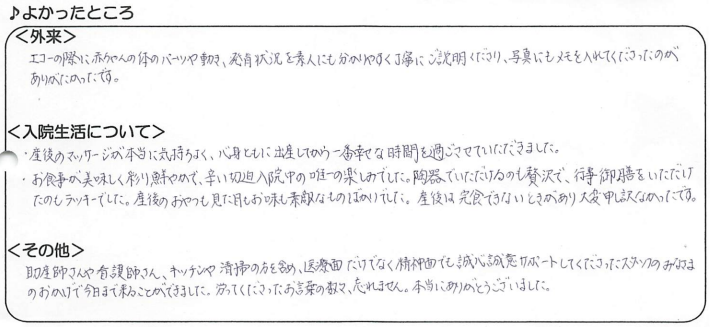 ♪よかったところ
＜外来＞
エコーの際に赤ちゃんの体のパーツや動き、発育状況を素人にも分かりやすく丁寧にご説明くださり、写真にもメモを入れてくださったのが
ありがたかったです。
＜入院生活について＞
・産後のマッサージが本当に気持ちよく、心身ともに出産してから一番幸せな時間を過ごさせていただきました。
・お食事が美味しく彩り鮮やかで、辛い切迫入院中の唯一の楽しみでした。陶器でいただけるのも贅沢で、行事御膳をいただけ
たのもラッキーでした。産後のおやつも見た目もお味も素敵なものばかりでした。産後は完食できないときがあり大変申し訳なかったです。
＜その他＞
助産師さんや看護師さん、キッチンや清掃の方を含め、医療面だけでなく精神面でも誠心誠意サポートしてくださったスタッフのみなさま
のおかげで今日まで来ることができました。労ってくださったお言葉の数々、忘れません。本当にありがとうございました。